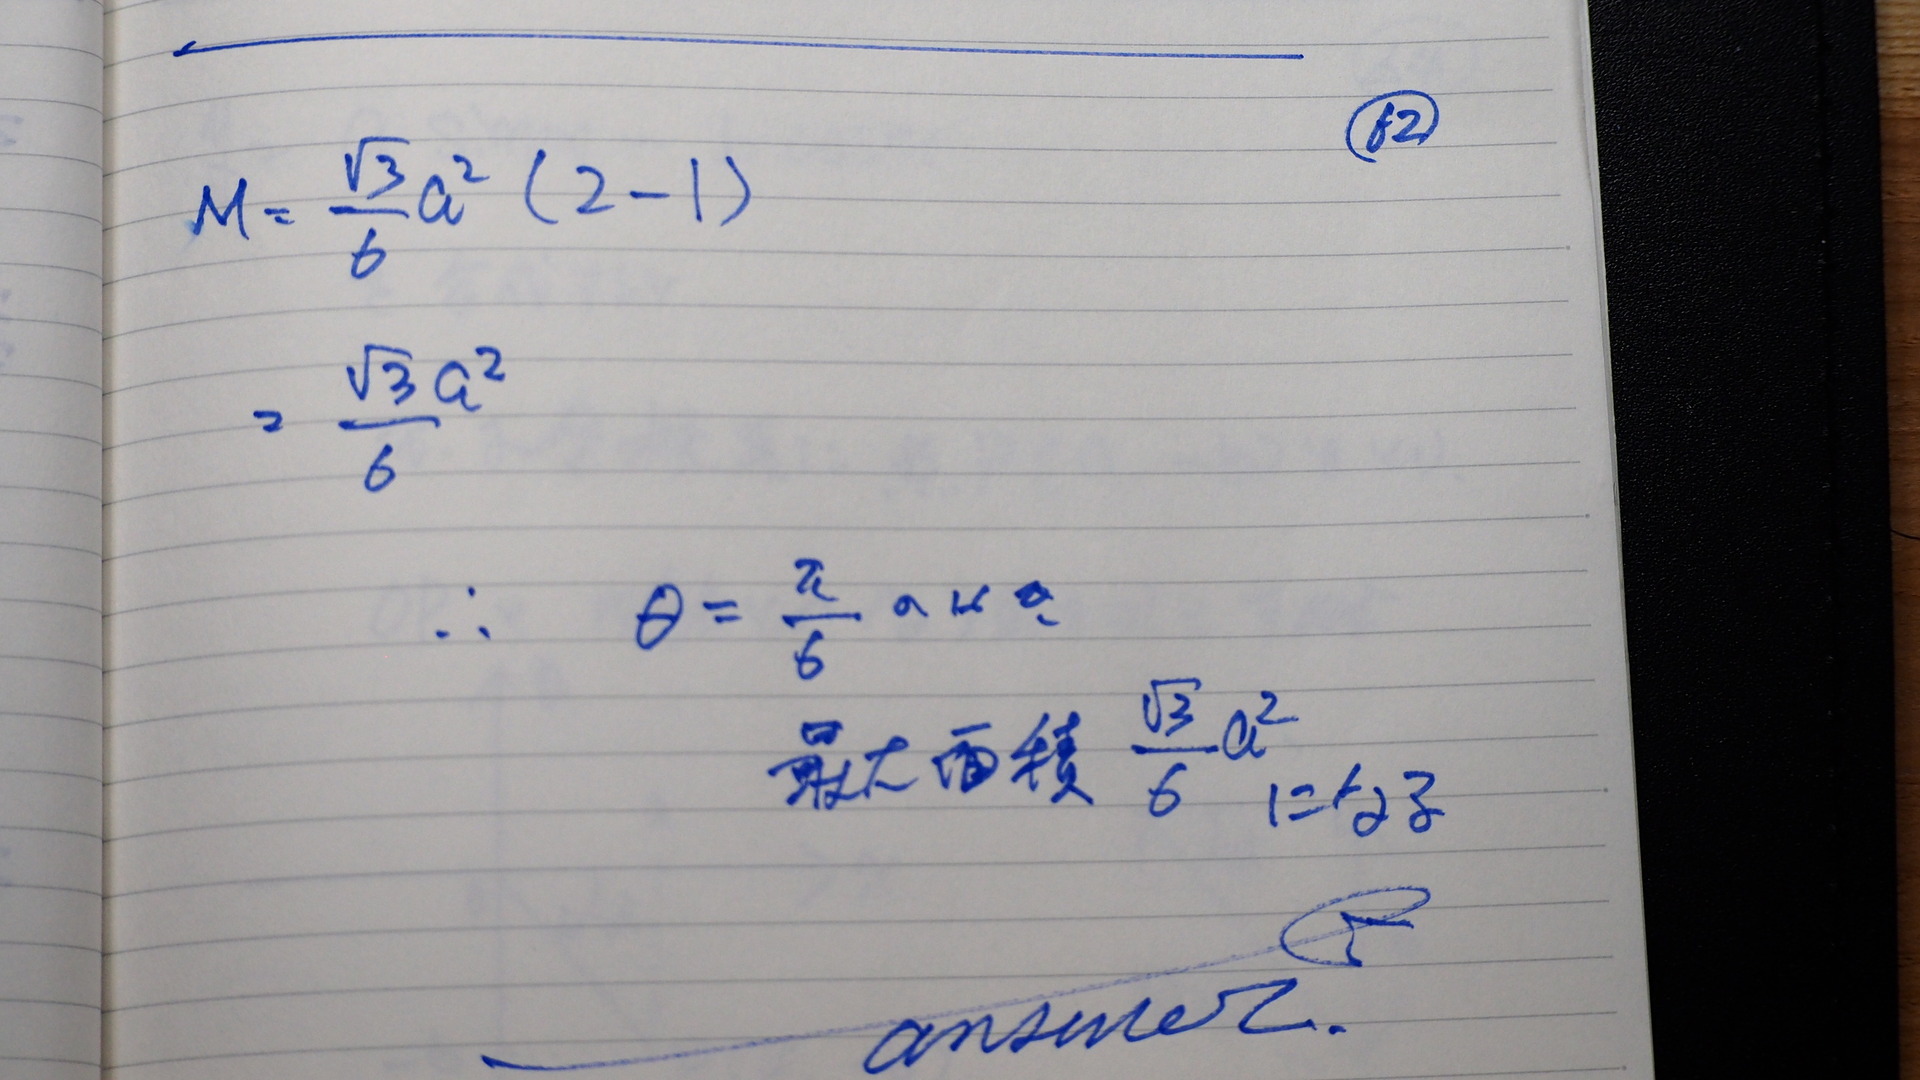 (62)
M = √3/6 a² (2-1)
= √3a²/6
∴ θ = π/6 のとき
最大面積 √3/6 a² になる
answer.